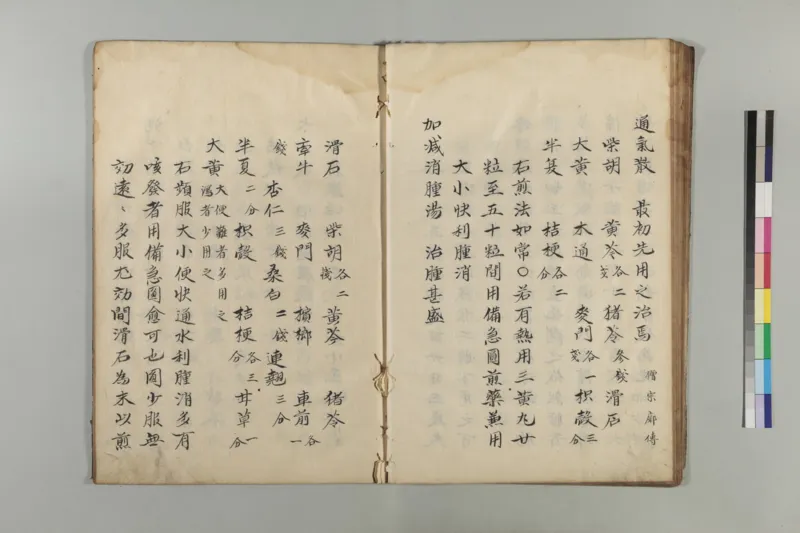 通氣散　最初先用之治馬　僧宗廓傳
柴胡　黄芩各二戔　猪苓参戔　滑石
大黄　木通　麥門各一戔　枳殻三分
半夏　桔梗各二分
右煎法如常〇若有熱用三黄丸廿
粒至五十粒間用備急圓煎藥兼用
大小快利腫消
加減消腫湯　治腫甚盛
滑石　柴胡各二戔　黄芩　猪苓
牽牛　麥門　檳榔　車前各一
戔　杏仁三戔　桑白二戔　連翹三分
半夏二分　枳殻　桔梗各三分　甘草一分
大黄大便難者多用之瀉者少用之
右頻服大小便快通水利腫消多有
咳發者用備急圓愈可也圓少服無
効遠〻多服尤効間滑石為末以煎